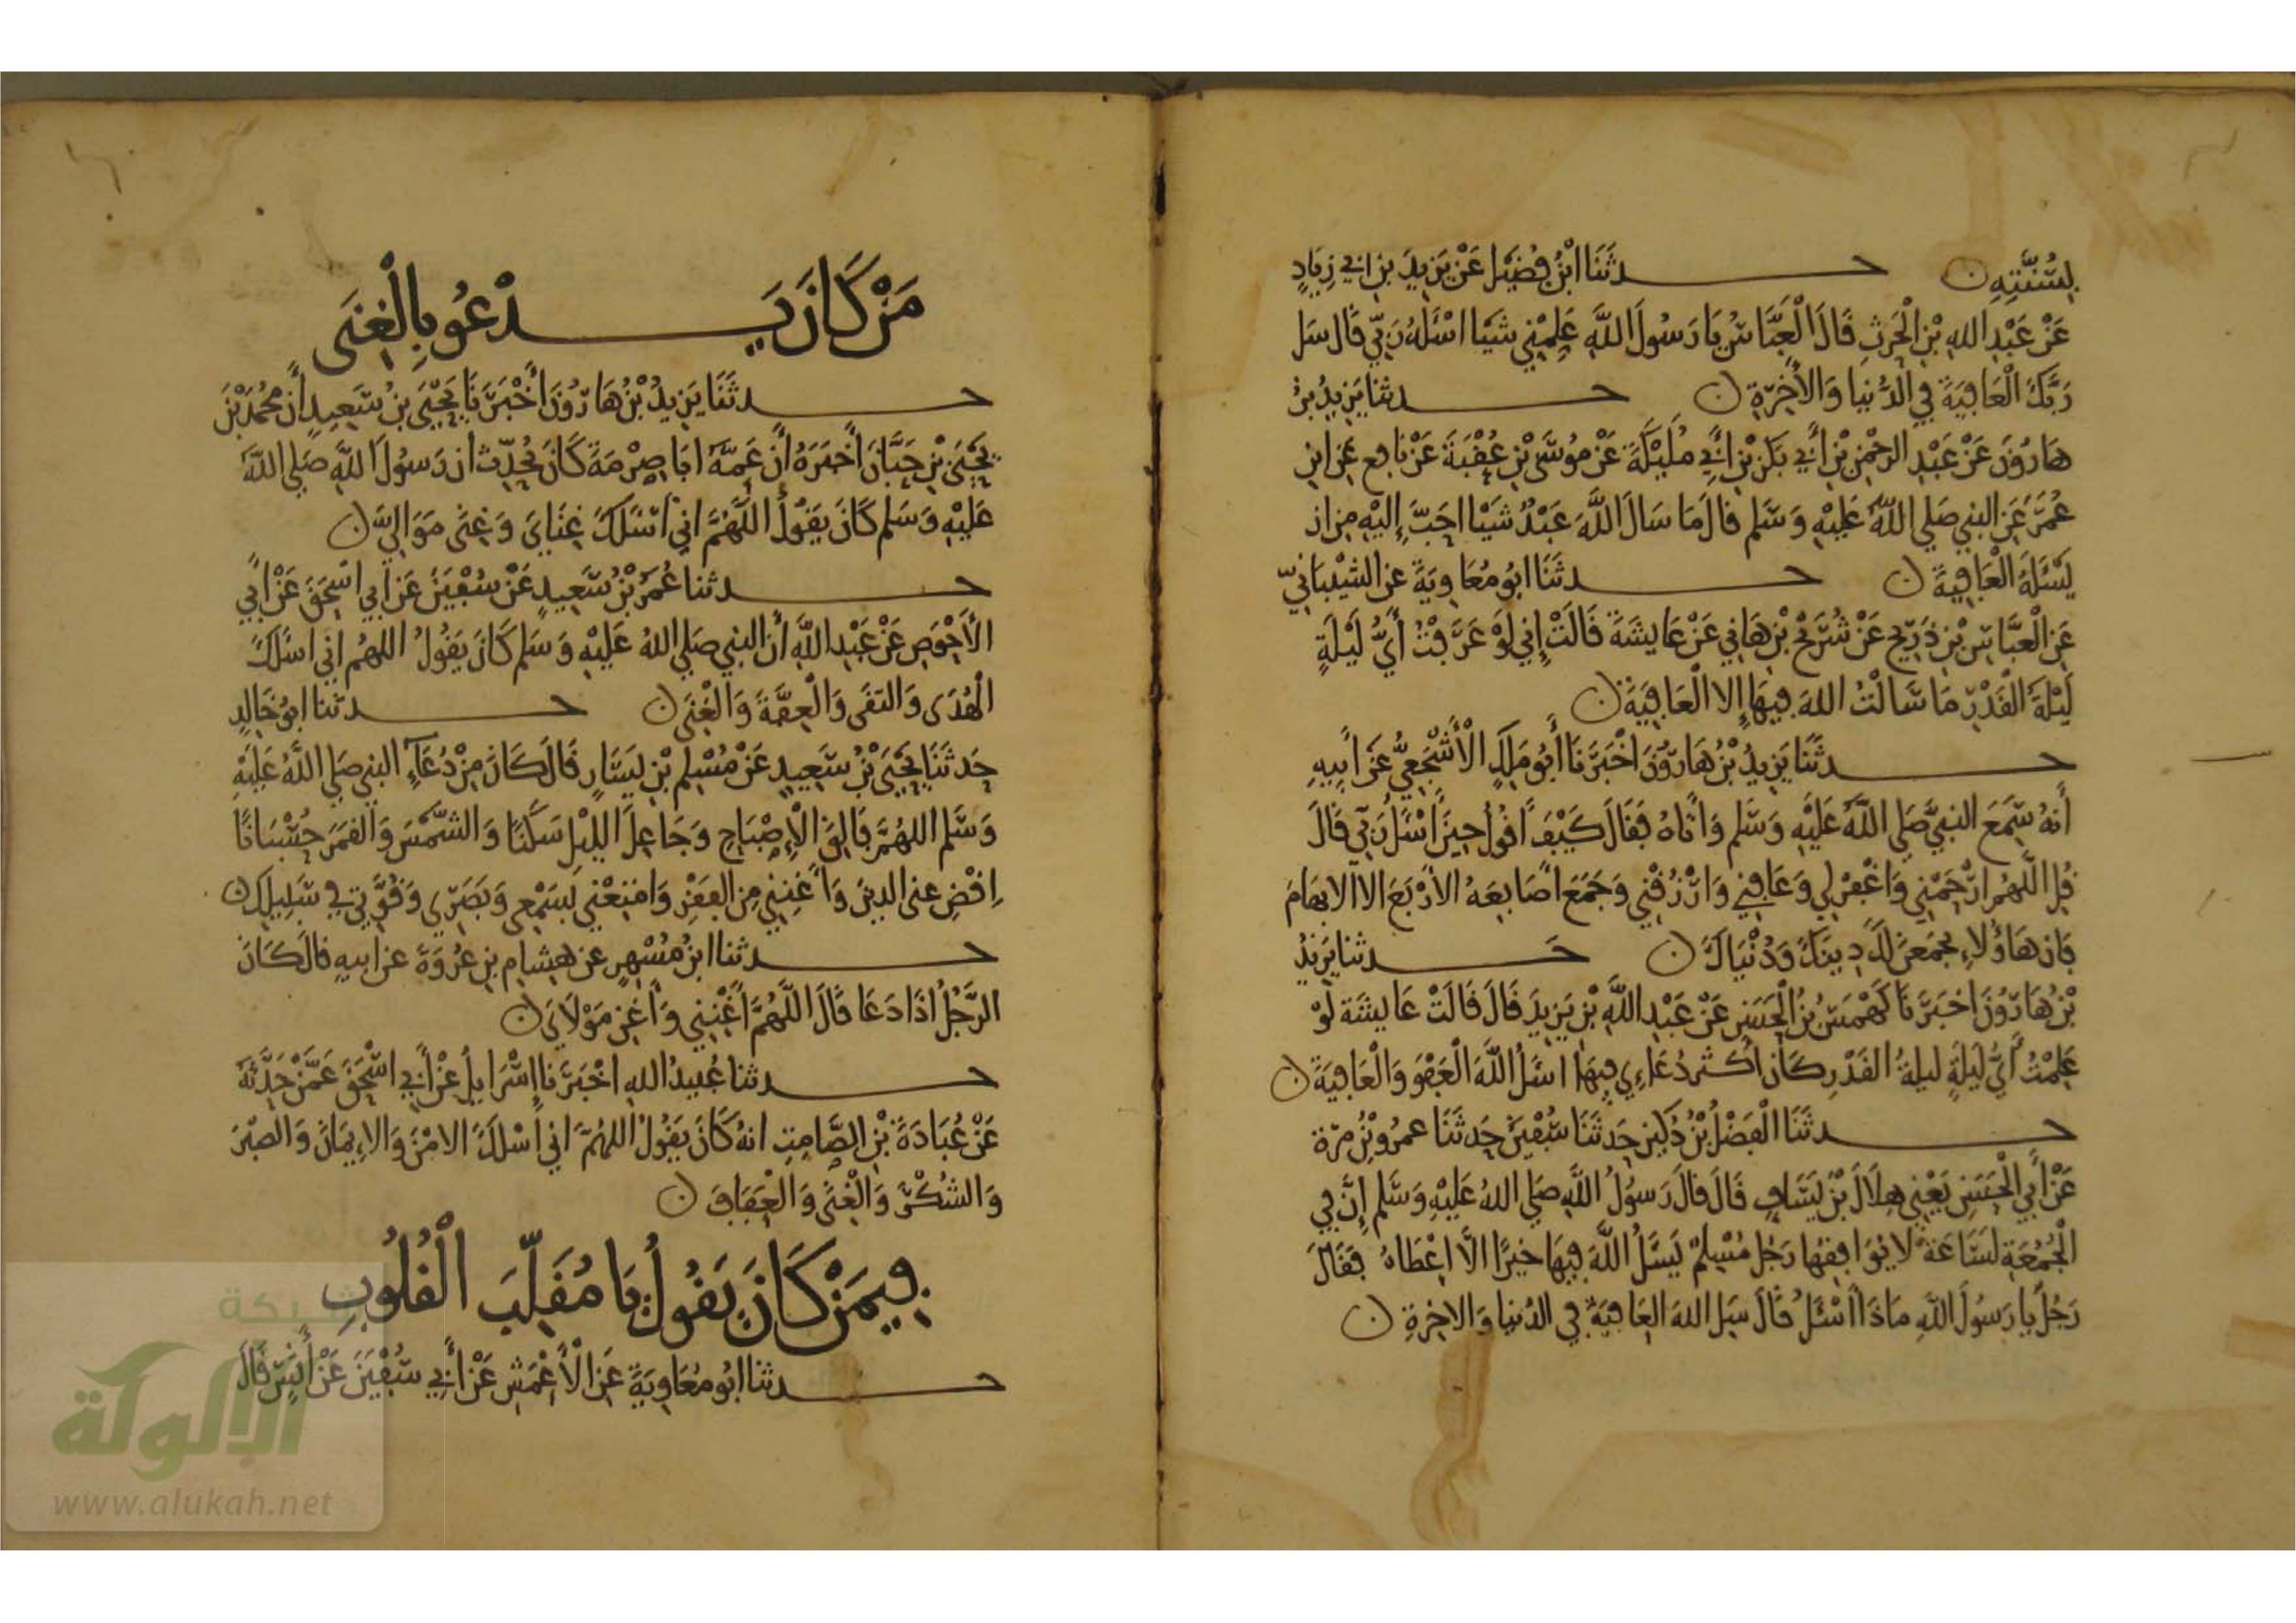 لِسُنَّتِهِ ن حدثَنَا ابْنُ فُضَيْل عَنْ يَزِيدَ بنِ ابي زِيَادٍ
عَنْ عَبْدِ اللهِ بْنِ الْحَرِثِ قَالَ الْعَبَّاسُ يَا رَسُولَ اللَّهِ عَلِّمْنِي شَيْا اسْئَلهُ رَبِّي قَال سَل
رَبَّكَ الْعَافِيَةَ فِي الدُّنيَا وَالْأَخِرَةِ ن حدثنا يَزِيدُ بنُ
هَارُونَ عَنْ عَبْدِ الرحْمنِ بْنِ أَبي بَكرِ بْنِ أَبِي مُلَيْكَةَ عَنْ مُوسَى بْنِ عُقْبَةَ عَنْ نافِع عَنِ ابنِ
عُمَرَ عَنِ النبي صَلي اللهُ عَلَيْهِ وَسَلم قالَ مَا سَالَ اللَّهَ عَبْدٌ شَيْا احَبَّ إِليْهِ مِن ان
يَسْئَلَهُ الْعَافِيَةَ ن حدثَنَا ابُو مُعَاوِيَةَ عن الشيْبَانيّ
عَنِ الْعبَّاسِ بْنِ ذَرِيْحٍ عَنْ شُرَيْحِ بْنِ هَانِي عَنْ عَايِشَةَ قَالَتْ إِني لَوْ عَرَفْتُ أَيُّ لَيْلَةٍ
لَيْلَةُ الْقَدْرِ مَا سَالْتُ اللهَ فِيهَا إِلا الْعَافِيَةَ ن
حدثَنَا يَزِيدُ بْنُ هَارُونَ اخْبَرَنَا أَبُو مَلِكٍ الْأَشْجَعِيُّ عَنْ أَبِيهِ
أَنهُ سَمِعَ النبِيَّ صَلي اللَّهُ عَلَيْهِ وَسَلم وَاتَاهُ فَقَالَ كَيْفَ اقُولُ حِينَ اسْئَلُ رَبِّي قَالَ
قُلِ اللَّهُم ارْحَمْنِي وَاغْفِرْ لِي وَعَافِنِي وَارْزُقْنِي وَجَمَعَ اصَابِعَهُ الأَرْبَعَ الا الابهَامَ
فَان هَاؤُلاءِ يجمَعْنَ لَكَ دِينَكَ وَدُنْيَاكَ ن حدثنا يَزِيدُ
بْنُ هَارُونَ اخبَرَنَا كَهْمَسُ بْنُ الْحَسَنِ عَنْ عَبْدِ اللَّهِ بْنِ يَزِيدَ قَالَ قَالَتْ عَايِشَة لَوْ
عَلِمْتُ أَيُّ لَيلَةٍ ليلةُ القَدْرِ كَان أكثر دُعَاءِي فِيهَا اسَلُ اللَّهَ الْعَفْوَ وَالْعَافِيَةَ ن
حدثَنَا الْفَضْلُ بْنُ دُكَيْن حَدثَنَا سُفْيَنُ حَدثَنَا عمرُو بْنُ مرّة
عَنْ أَبي الْحَسَنِ يَعْنِي هِلَالَ بْنَ يَسَافٍ قَالَ قالَ رَسولُ اللَّهِ صَلي اللهُ عَلَيْهِ وَسَلم إِنَّ فِي
الْجُمُعَةِ لَسَاعَةً لَا يُوَافِقهَا رَجُل مُسْلِمٌ يَسَلُ اللَّهَ فِيهَا خيرًا الَّا اعْطَاهُ فقَالَ
رَجُلٌ يا رَسُولَ اللهِ مَاذَا اسْئَلُ قَالَ سَلِ اللهَ العَافِيَة فِي الدنيا وَالاخِرَةِ ن
مَنْ كَانَ يَدْعُو بِالْغِنَى
حدثَنَا يَزِيدُ بْنُ هَارُونَ أَخْبَرَنَا يَحْيَى بنُ سَعِيدٍ أَن محُمدَ بْنَ
يَحْيَى بْنِ حَبَّانَ أَخبَرَهُ أَنَّ عَمهُ ابَا صِرْمَةَ كَانَ يُحَدِّث ان رَسُولَ اللَّهِ صَلي اللَّهُ
عَلَيْهِ وَسَلم كَانَ يَقُولُ اللَّهُمَّ اني اسْئلكَ غِنَايَ وَغِنَى مَوَالِيَّ ن
حدثنا عُمَرُ بْنُ سَعِيدٍ عَنْ سُفْيَنَ عَن ابي اسْحَقَ عَنْ أَبي
الأَحْوَصِ عَنْ عَبْدِ اللَّهِ أَن النبي صَلي اللهُ عَلَيْهِ وَسَلم كَانَ يَقُولُ اللهُم اني اسْئلكَ
الْهُدَى وَالتقَى وَالْعِفَّةَ وَالْغِنَى ن حدثنا ابُو خَالِدٍ
حَدثَنَا يَحْيَى بْنُ سَعِيدٍ عَنْ مُسْلِم بْنِ يَسَارٍ قَالَ كَانَ مِنْ دُعَآءِ النبي صَلي اللَّهُ عَلَيْهِ
وَسَلم اللهُمَّ فَالِقَ الْإِصْبَاحِ وَجَاعِلَ اللَّيْلِ سَكَنًا وَالشَّمْسَ وَالقَمَرَ حُسْبَانًا
اِقْضِ عني الدينَ وَأَغْنِنِي مِنَ الفَقْرِ وَامْتِعْنِي بِسَمْعِي وَبَصَرِي وَقُوَّتِي فِي سَبِيلِكَ ن
حدثنا ابنُ مُسْهِرٍ عن هِشامِ بنِ عُرْوَةَ عن ابيهِ قالَ كَانَ
الرَّجُلُ اذَا دَعَا قَالَ اللَّهُمَّ أَغْنِنِي وَأَغْنِ مَوْلَايَ ن
حدثنا عُبيدُ اللهِ اخْبَرَنا إِسْرَايلُ عَنْ أَبي اسْحَقَ عَمَّنْ حَدَّثَهُ
عَنْ عُبَادَةَ بْنِ الصَّامِتِ انهُ كَانَ يَقُولُ اللَهُمَّ اني أَسْلكَ الامْنَ وَالايمَانَ وَالصبْرَ
وَالشكْرَ وَالْغِنَى وَالْعَفَافَ ن
فِيمَنْ كَانَ يَقُولُ يَا مُقَلِّبَ الْقُلُوبِ
حدثنا ابُو مُعَاوِيَةَ عَنِ الْأَعْمَشِ عَنْ أَبي سُفْيَنَ عَنْ أَنَسٍ قَالَ
شبكة
الألوكة
www.alukah.net